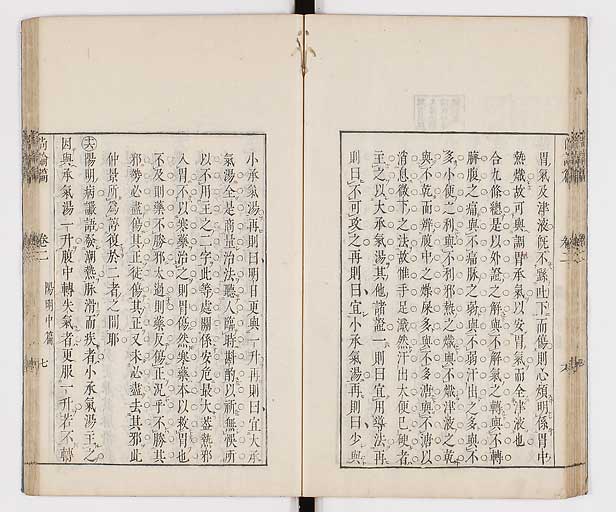 胃氣及津液旣不繇吐下而傷則心煩明係胃中
熱熾故可與調胃承氣以安胃氣而全津液也
合九條總是以外證之解與不解氣之轉與不轉
臍腹之痛與不痛脉之弱與不弱汗出之多與不
多小便之利與不利邪熱之熾與不熾津液之乾
與不乾而辨腹中之燥屎多與不多溏與不溏以
消息微下之法故惟手足濈然汗出大便已硬者
主之以大承氣湯其他諸證一則曰宜用導法再
則曰不可攻之再則曰宜小承氣湯再則曰少與
小承氣湯再則曰明日更與一升再則曰宜大承
氣湯全是商量治法聽人臨時斟酌以祈無悞所
以不用主之二字此等處關係安危最大葢熱邪
入胃不以寒藥治之則胃傷然寒藥本以救胃也
不及則藥不勝邪太過則藥反傷正況乎不勝其
邪勢必盡傷其正徒傷其正又未必盡去其邪此
仲景所爲諄復於二者之間耶
六陽明病讝語發潮熱脉滑而疾者小承氣湯主之
因與承氣湯一升腹中轉失氣者更服一升若不轉
尚論篇 卷二 陽明中篇 七